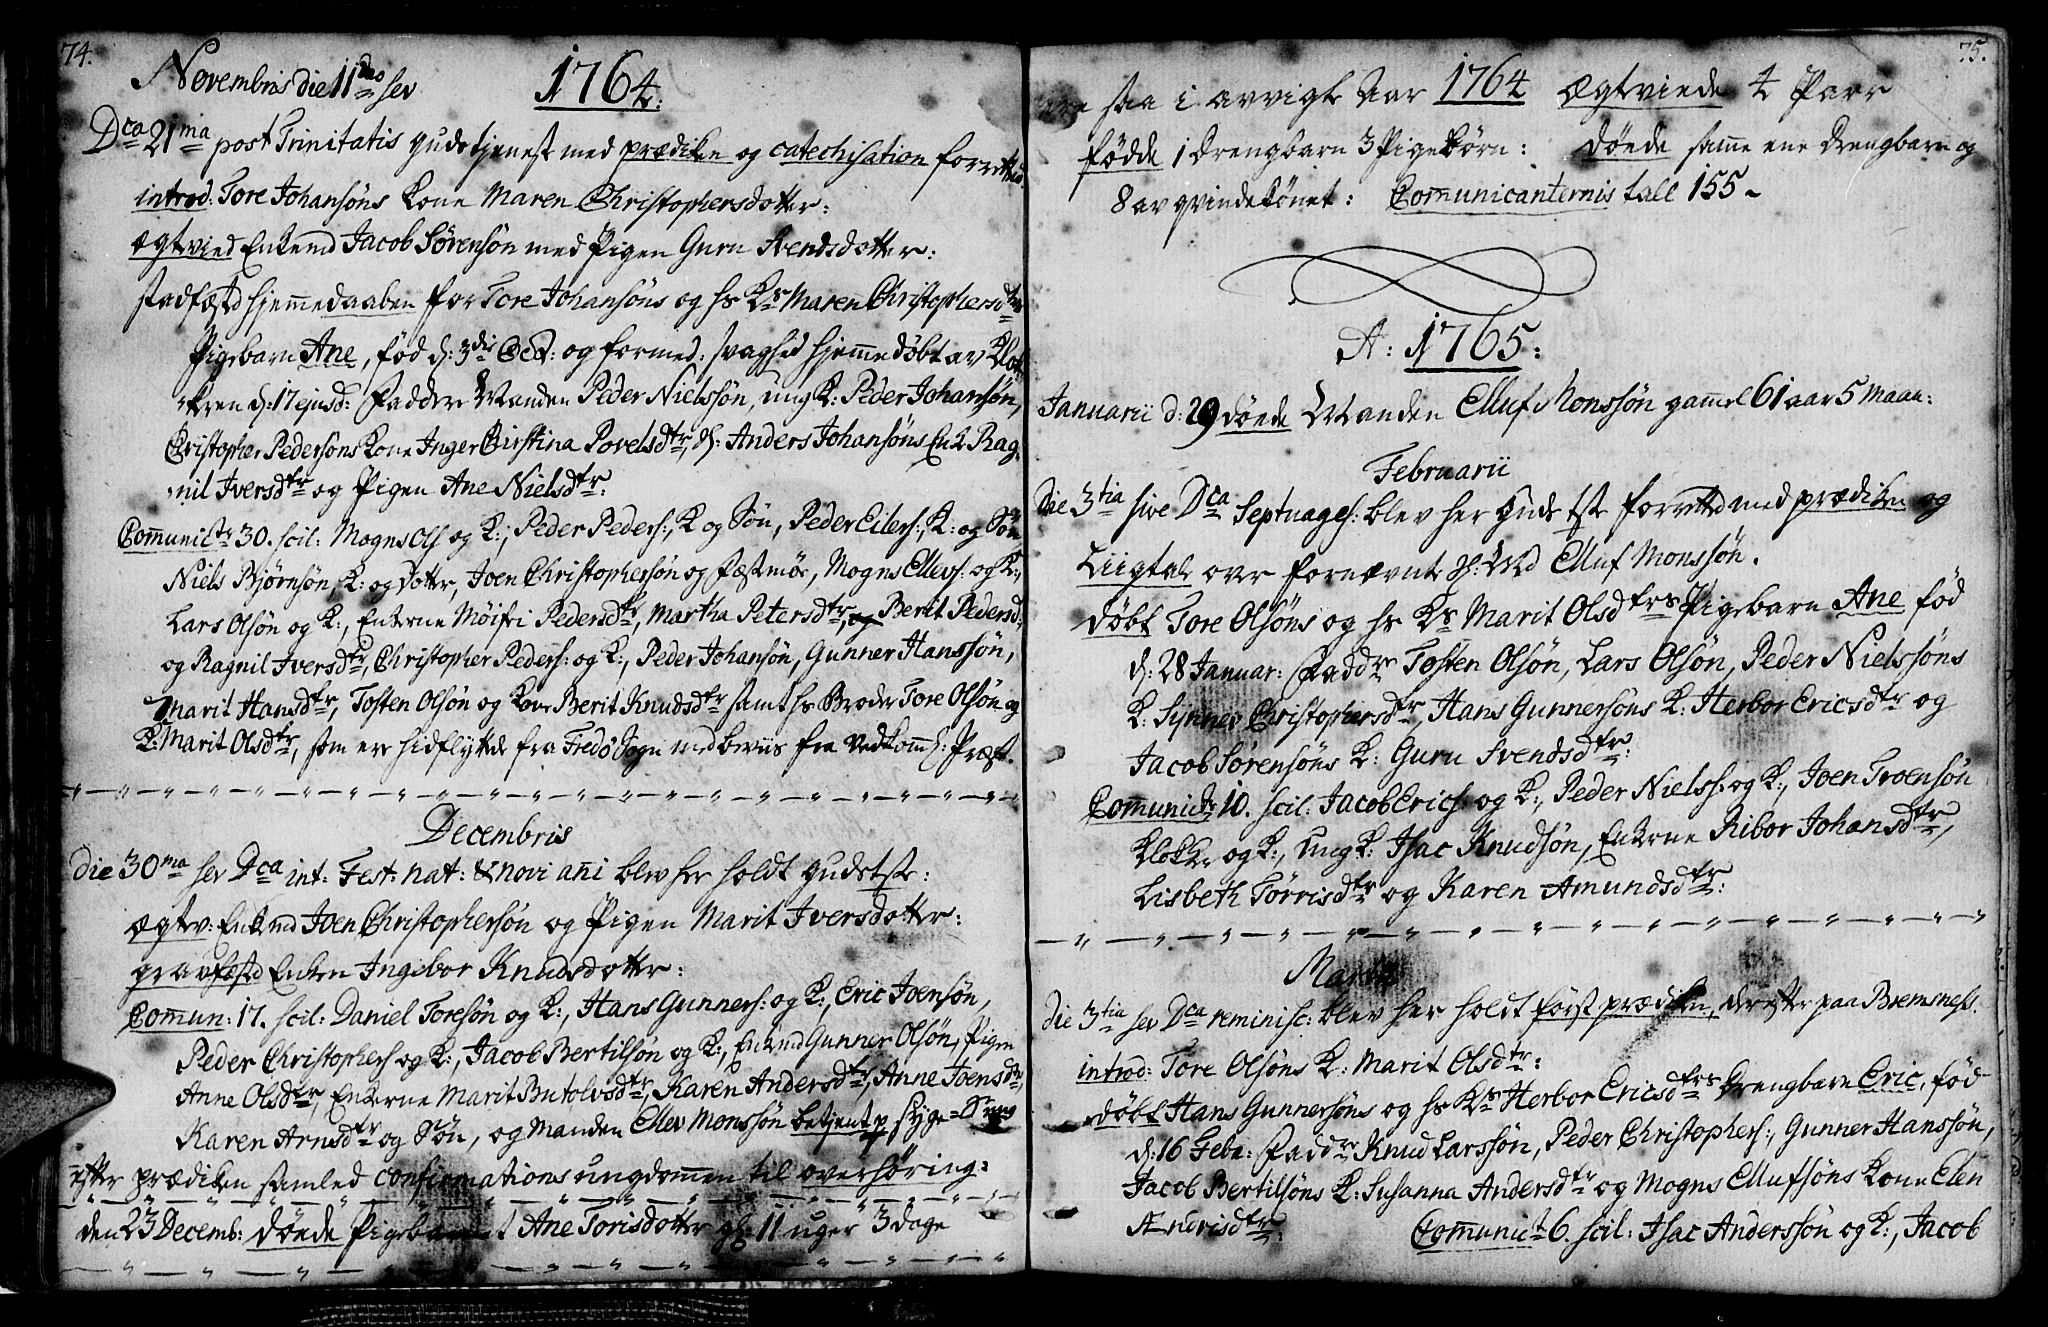 74.
Novembris die 11mo sev 1764.
Dca 21ma post Trinitatis gudstjenest med prædiken og catechisation forrettid.
introd: Tore Johansøns Kone Maren Christophersdotter:
ægtvied Enkend Jacob Sørensøn med Pigen Guru Svendsdotter:
stadfæstd hjemmedaaben for Tore Johansøns og hs Ks Maren Christophersdtrs
Pigebarn Ane, fød d: 3die Oct: og formed: svaghed hjemmedøbt av Klok-
keren d: 17 ejusd: Faddere Manden Peder Nielssøn, ung K: Peder Johansøn,
Christopher Pedersøns Kone Inger Cirstina Povelsdtr, S: Anders Johansøns Enk Rag-
nil Iversdtr og Pigen Ane Nielsdtr:
Communictr 30. scil: Mogns Ols og K:, Peder Peders:, K og Søn, Peder Eilers:, K: og Søn
Niels Bjørnsøn, K: og Dotter, Joen Christophersøn og fæstmøe, Mogns Ellevs: og K:,
Lars Olsøn og K:, Enkerne Møifri Pedersdtr, Martha Petersdtr, og Berit Pedersd:
og Ragnil Iversdtr, Christopher Peders: og K:, Peder Johansøn, Gunner Hanssøn,
Marit Hansdtr, Tosten Olsøn og Kone Berit Knudsdtr samt hs Broder Tore Olsøn og
K: Marit Olsdtr, som er hidflyttede fra Fredø Sogn med beviis fra Vedkom: Præst.
Decembris
die 30ma sev Dca int: Fest: nat: & novi ani blev her holdt gudstste:
ægtv: Enkmd Joen Christophersøn og Pigen Marit Iversdotter:
gravfæstd Enken Ingebor Knudsdotter:
Commun: 17. scil: Daniel Toresøn og K:, Hans Gunners: og K:, Eric Joensøn,
Peder Christophers og K:, Jacob Bertilsøn og K:, Enkmd Gunner Olsøn, Pigen
Anne Olsdtr, Enkerne Marit Butolvsdtr, Karen Andersdtr, Anne Joensdtr,
Karen Arnsdtr og Søn, og Manden Ellev Monssøn betjent p syge=Seng
etter prædiken samled confirmations ungdommen til overhøring:
den 23 Decemb: døede Pigebarnet Ane Torisdotter gl: 11 uger 3 dage
75.
ere saa i avvigte Aar 1764 Ægtviede 4 Parr
fødde 1 Drengbarn 3 Pigebørn: døede samme ene Drengbarn og
8 av qvindekønet: Communicanternis tall 155~
A: 1765:
Januarii d: 29 døede Manden Elluf Monssøn gammel 61 aar 5 maan:
Februarii
Die 3tia sive Dca Septuages: blev her Gudstste forrettd med prædiken og
Liigtale over fornævnte S: Md Elluf Monssøn.
døbt Tore Olsøns og hs Ks Marit Olsdtrs Pigebarn Ane fød
d: 28 Januar: Faddre Tosten Olsøn, Lars Olsøn, Peder Nielssøns
K: Synnev Christophersdtr, Hans Gunnersøns K: Herbor Ericsdtr og
Jacob Sørensøns K: Guru Svendsdtr:
Communictr 10. scil: Jacob Erics: og K:, Peder Niels: og K:, Joen Troensøn
Klokkr og K:, Ung K: Isac Knudsøn, Enkerne Ribor Johansdtr,
Lisbeth Tørrisdtr og Karen Amundsdtr:
Martii
die 3tia sev Dca reminisc: blev her holdt først prædiken, derefter paa Bremsness.
introd: Tore Olsøns K: Marit Olsdtr:
døbt Hans Gunnersøns og hs Ks Herbor Ericsdtrs Drengbarn Eric, fød
d: 16 Febr: Faddre Knud Larssøn, Peder Christophers:, Gunner Hanssøn,
Jacob Bertilsøns K: Susanna Andersdtr og Mogns Ellufsøns Kone Elen
Ændrisdtr: Communict 6. scil: Isac Anderssøn og K:, Jacob